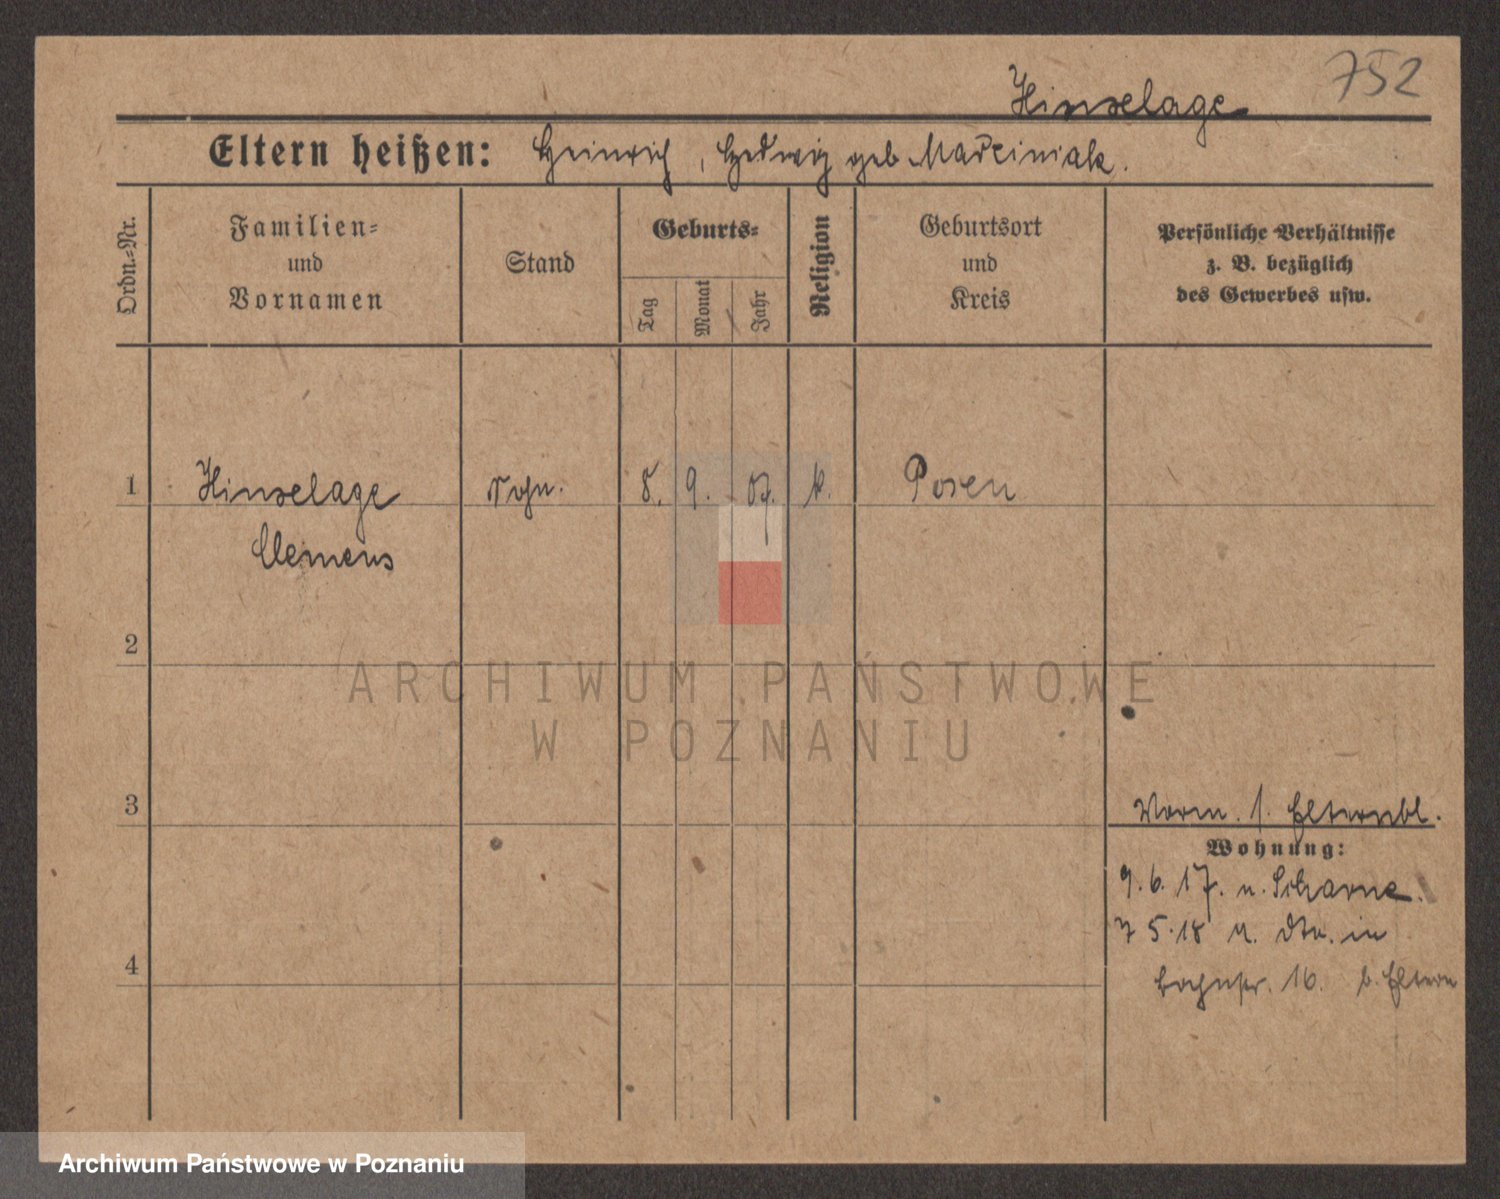 752
Hinselage
Eltern heißen: Heinrich, Hedwig geb Marciniak.
Ordn.=Nr.
Familien=
und
Vornamen
Stand
Geburts=
Tag
Monat
Jahr
Religion
Geburtsort
und
Kreis
Persönliche Verhältnisse
z. B. bezüglich
des Gewerbes usw.
1 Hinselage Sohn. 8. 9. 07. k. Posen
Clemens
2
ARCHIWUM PAŃSTWOWE
W POZNANIU
3
Vorm. s. Elternbl.
Wohnung:
9. 6. 17. n.
7 5. 18 in
4
16. b. Eltern
Archiwum Państwowe w Poznaniu